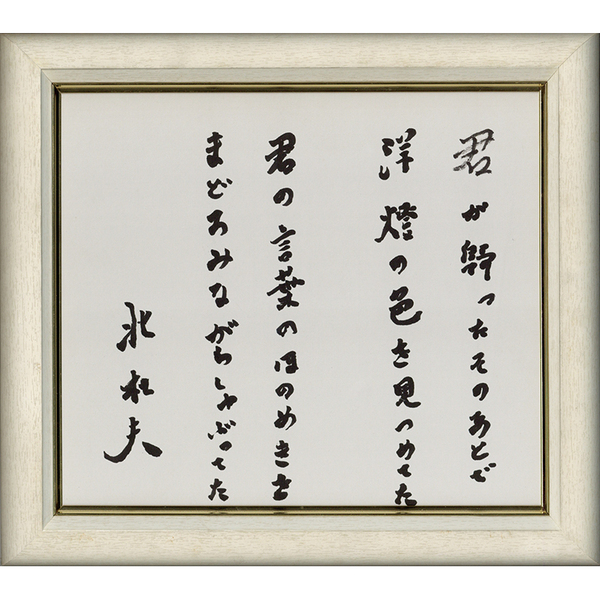 君が帰ったそのあとで
洋燈の色を見つめてた
君の言葉のほのめきを
まどろみながらしゃぶってた
北杜夫